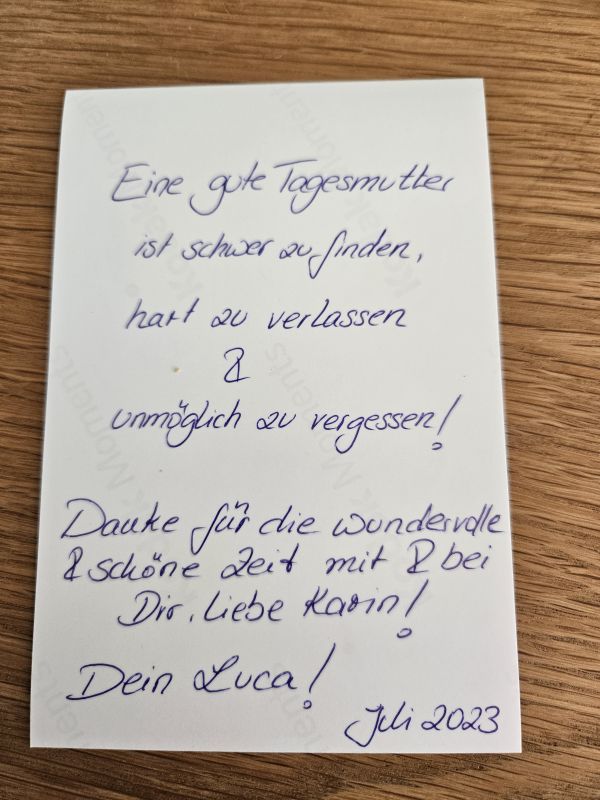 Eine gute Tagesmutter
ist schwer zu finden,
hart zu verlassen
&
unmöglich zu vergessen!
Danke für die wundervolle
& schöne Zeit mit & bei
Dir, liebe Karin!
Dein Luca!
Juli 2023